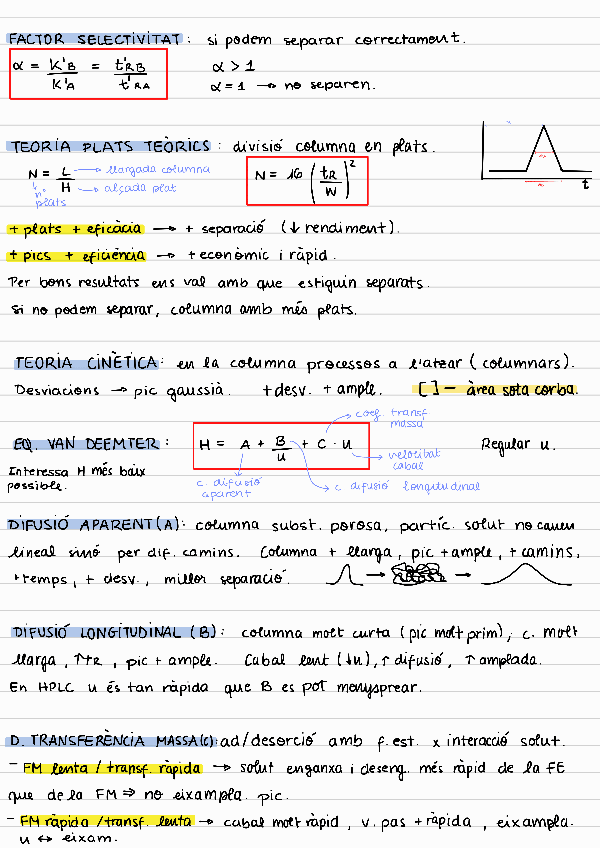 FACTOR SELECTIVITAT: si podem separar correctament.
α = K'B / K'A = t'RB / t'RA
α > 1
α = 1 → no separen.
TEORIA PLATS TEÒRICS: divisió columna en plats.
N = L / H
→ llargada columna
→ alçada plat
nº plats
N = 16 (tR / W)²
t
+ plats + eficàcia → + separació (↓ rendiment).
+ pics + eficiència → + econòmic i ràpid.
Per bons resultats ens val amb que estiguin separats.
Si no podem separar, columna amb més plats.
TEORIA CINÈTICA: en la columna processos a l'atzar (columnars).
Desviacions → pic gaussià. + desv. + ample. [ ] — àrea sota corba.
EQ. VAN DEEMTER: H = A + B/u + C · u Regular u.
→ coef. transf massa
→ velocitat cabal
c. difusió aparent
→ c difusió longitudinal
Interessa H més baix
possible.
DIFUSIÓ APARENT (A): columna subst. porosa, partíc. solut no
lineal sinó per dif. camins. Columna + llarga, pic + ample, + camins,
+ temps, + desv., millor separació.
DIFUSIÓ LONGITUDINAL (B): columna molt curta (pic molt prim); c. molt
llarga, ↑tR, pic + ample. Cabal lent (↓u), ↑ difusió, ↑ amplada.
En HPLC u és tan ràpida que B es pot menysprear.
D. TRANSFERÈNCIA MASSA(C): ad/desorció amb f.est. x interacció solut.
- FM lenta / transf. ràpida → solut enganxa i deseng. més ràpid de la FE
que de la FM ⇒ no eixampla. pic.
- FM ràpida / transf. lenta → cabal molt ràpid, v. pas + ràpida, eixampla.
u ↔ eixam.